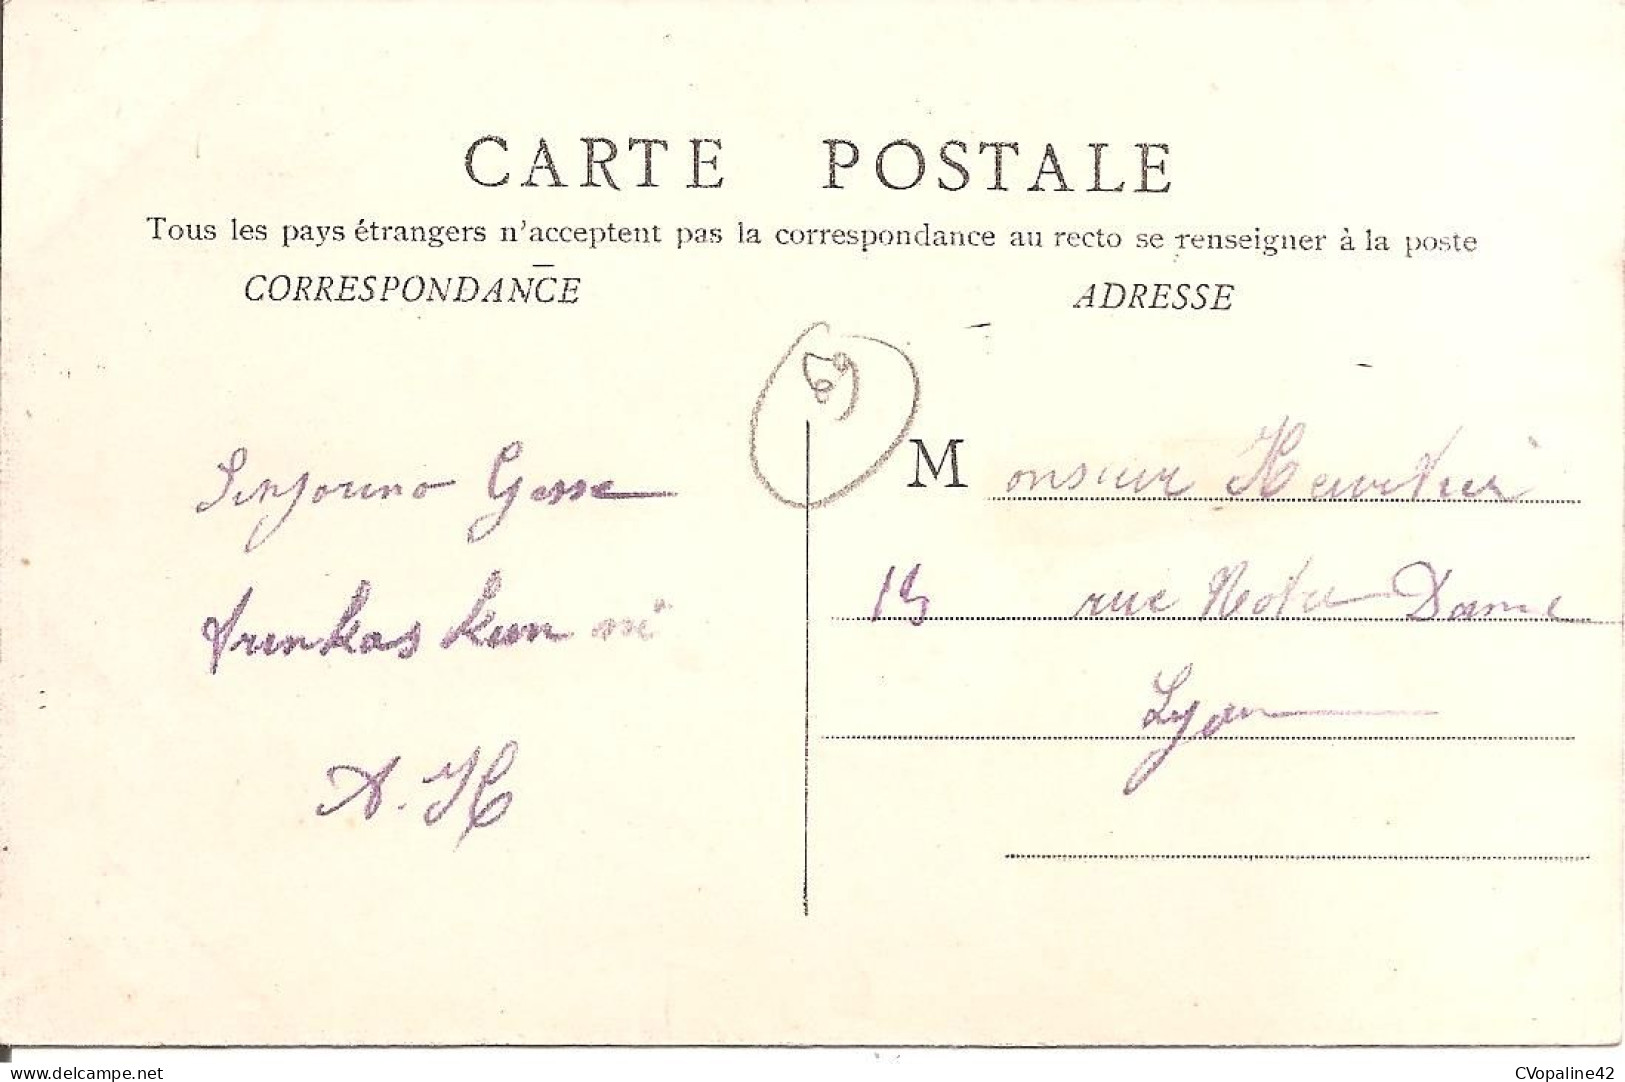 CARTE POSTALE
Tous les pays étrangers n'acceptent pas la correspondance au recto se renseigner à la poste
CORRESPONDANCE
ADRESSE
69
Sinjorino Gasse
trinkas kun mi
A. H
Monsieur Heurtier
15 rue Notre Dame
Lyon
delcampe.net
CVopaline42